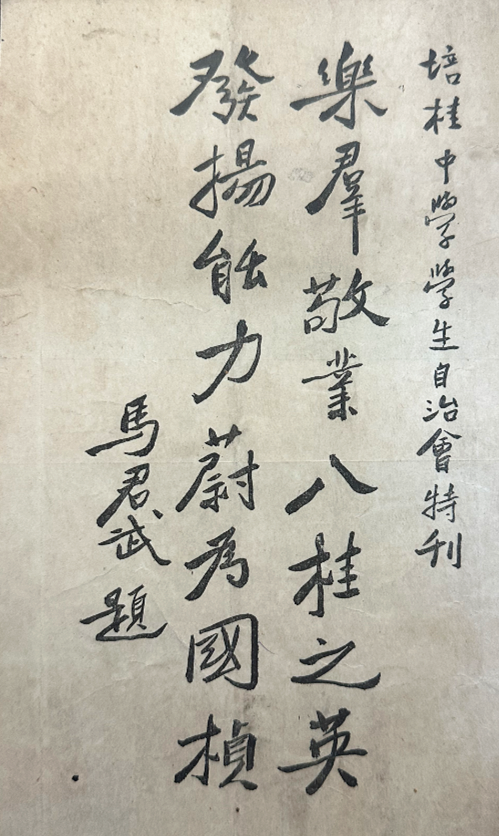 培桂中學學生自治會特刊
樂羣敬業八桂之英
發揚能力蔚為國楨
馬君武題